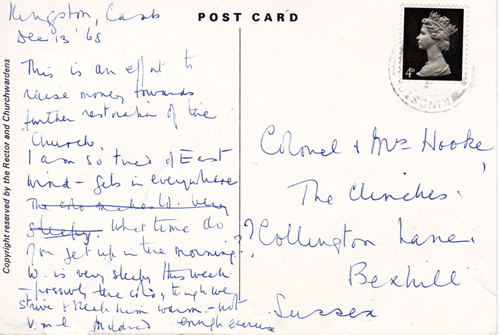 Kingston, Camb
Dec 13 '68
POST CARD
4D
KINGSTO
This is an effort to
raise money towards
further restoration of the
Church.
I am so tired of East
wind – gets in everywhere
The cold makes W. very
sleepy. What time do
you get up in the morning?
W. is very sleepy this week
– possibly the cold, though we
strive to keep him warm – not
enough exercise
V.m.l Mildred
Colonel & Mrs Hooke
The Clinches.
? Collington Lane.
Bexhill
Sussex
Copyright reserved by the Rector and Churchwardens